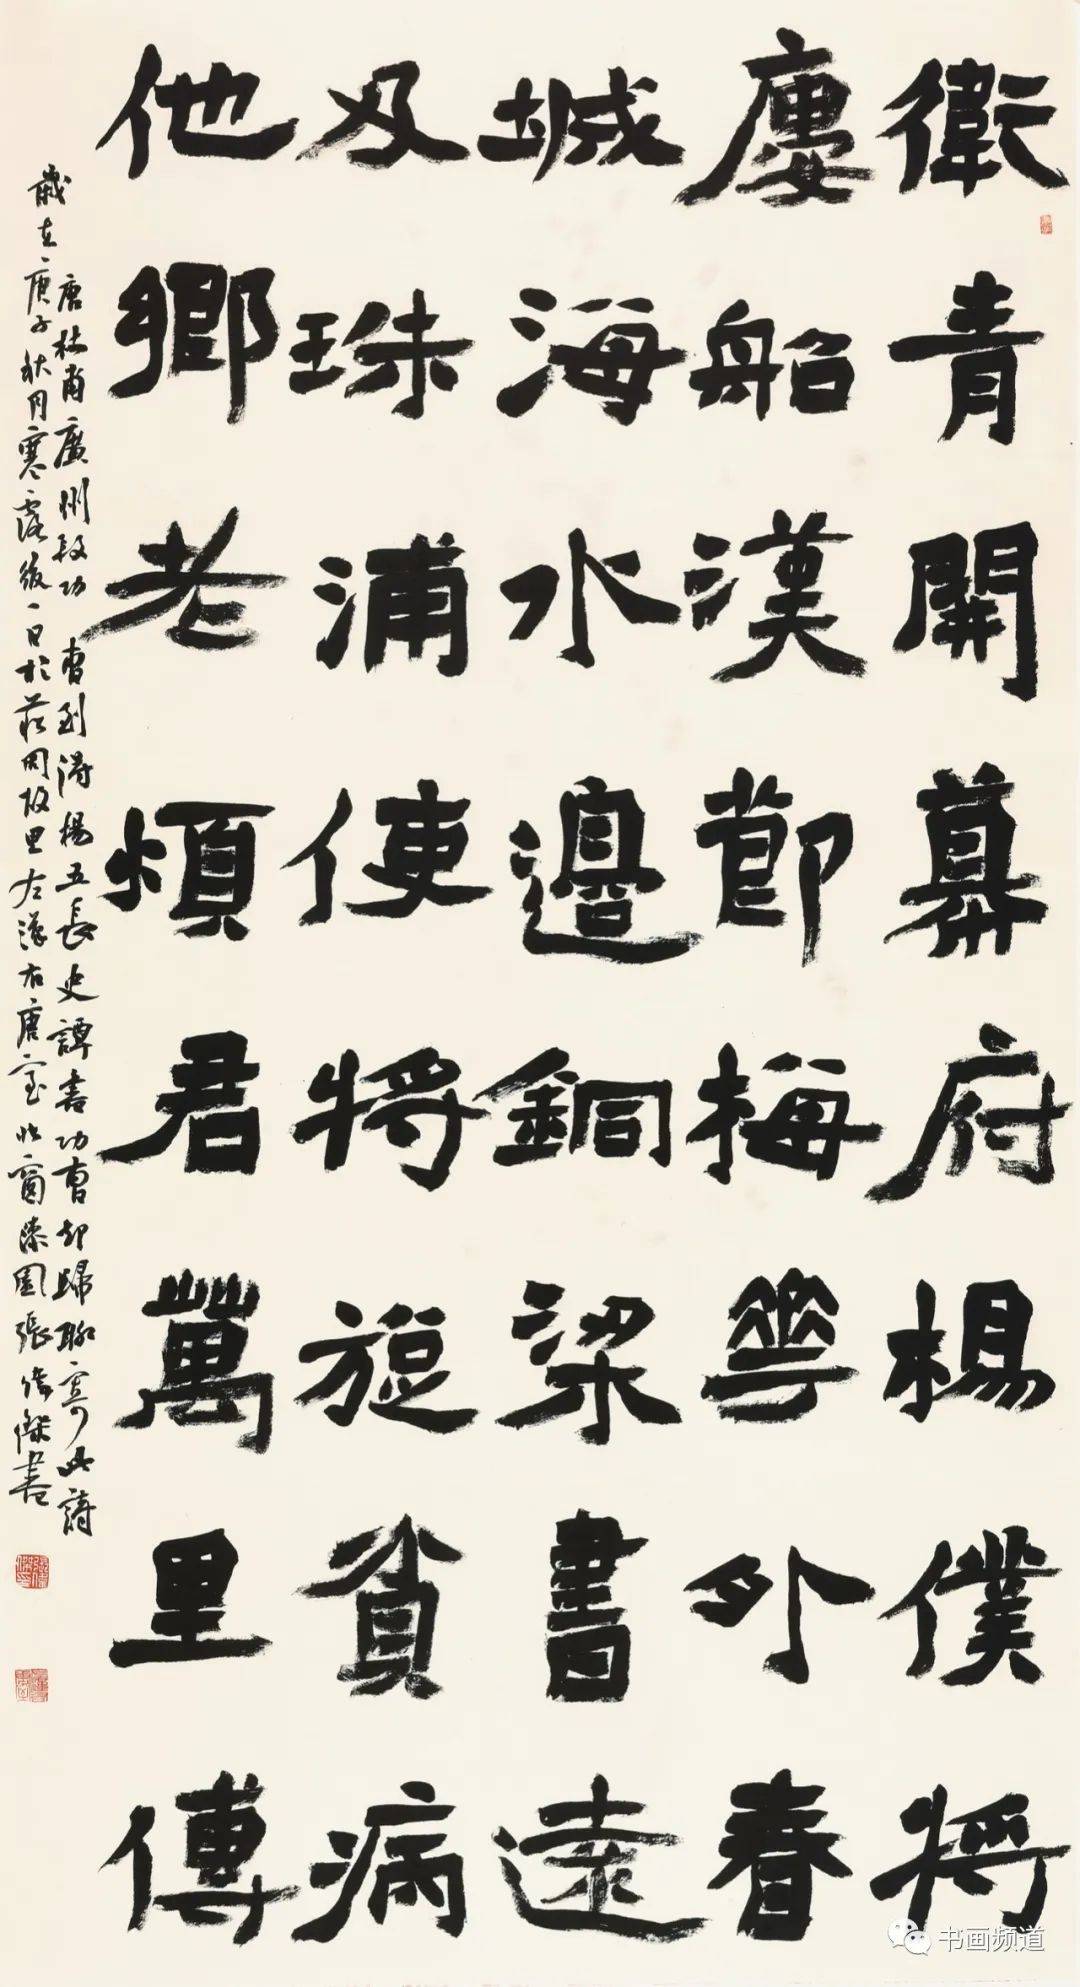 衛青開幕府楊僕將
廔船漢節梅華外春
城海水邊銅梁書遠
及珠浦使將旋貧病
他鄉老煩君萬里傳
唐杜甫廣州段功曹到得楊五長史譚書功曹却歸聊寄此詩
歲在庚子秋月寒露後一日於莊周故里左漢右唐室北窗漆園張偉傑書
书画频道